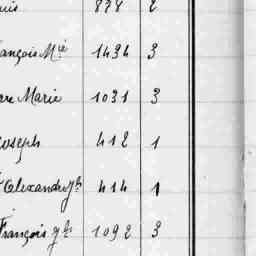 uis 878 2
ançois Mie 1434 3
re Marie 1031 3
oseph 412 1
Alexandre 414 1
François 1092 3